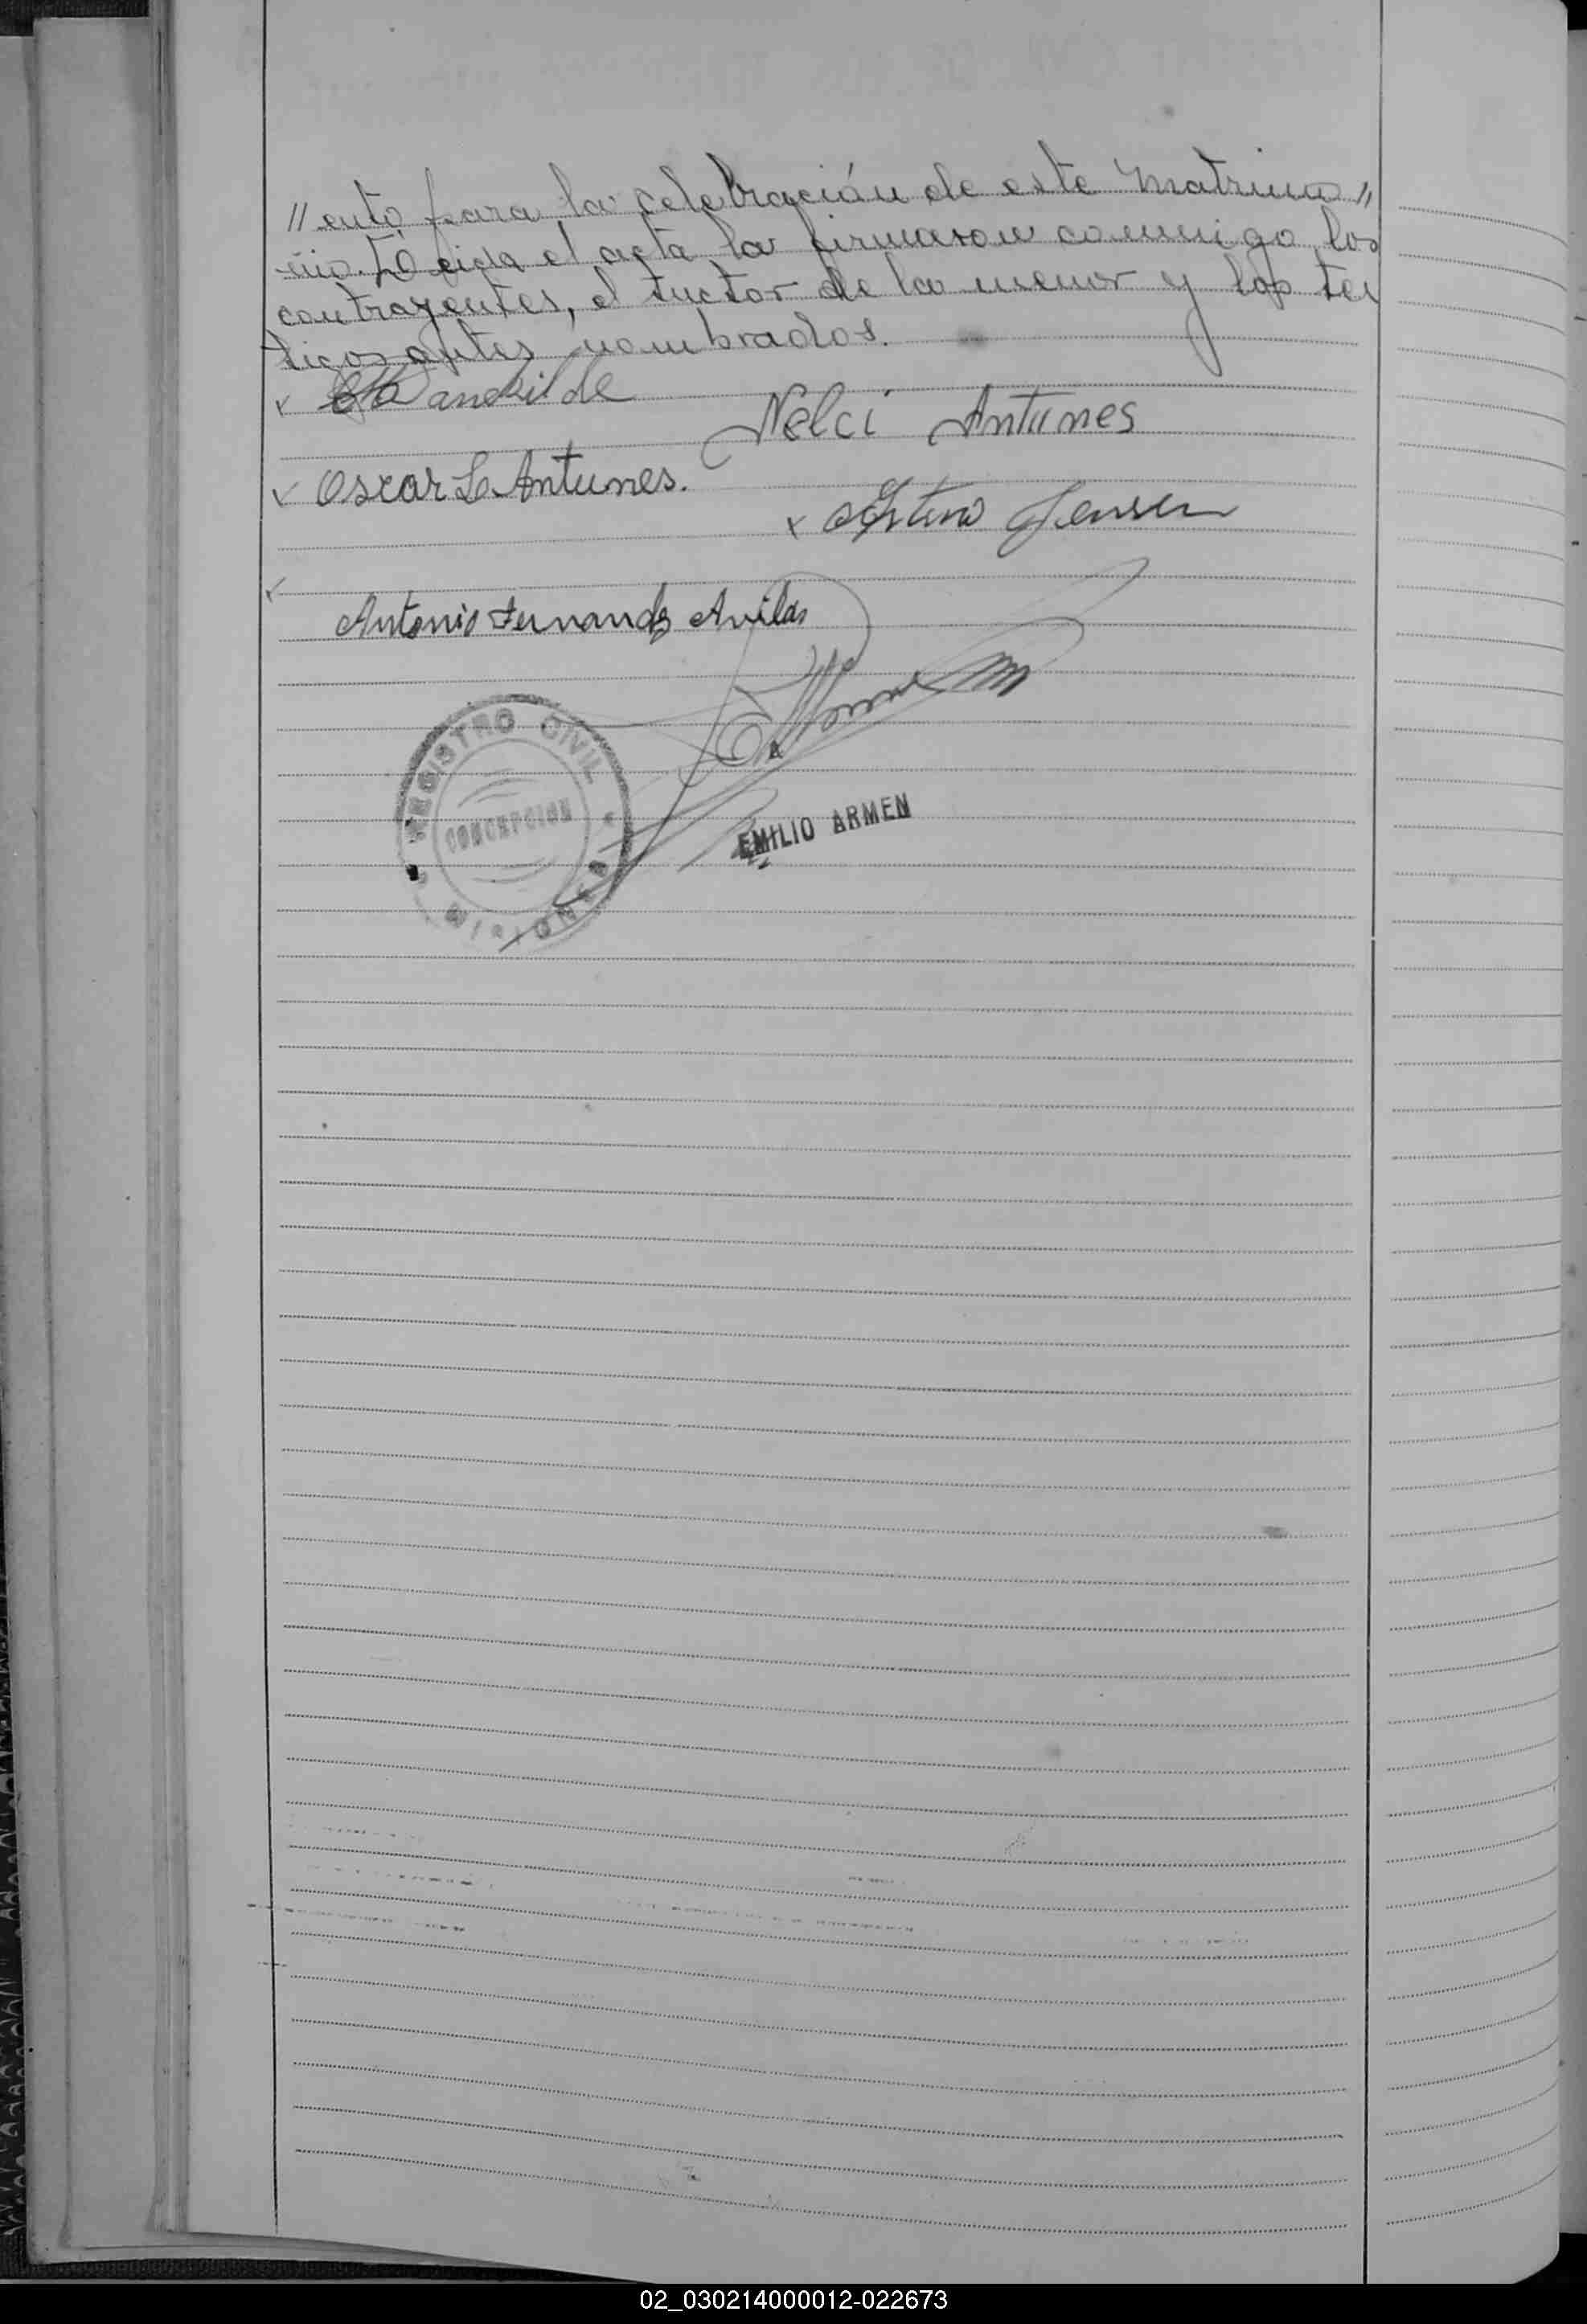 // ento para la celebración de este matrimo //
nio. Leída el acta la firmaron conmigo los
contrayentes, el tuctor de la menor y los tes
tigos antes nombrados.
Nelci Antunes
Oscar L Antunes.
Jensen
Antonio Fernandz Avilas
REGISTRO CIVIL
CONCEPCION
MISIONES
EMILIO ARMEN
02_030214000012-022673